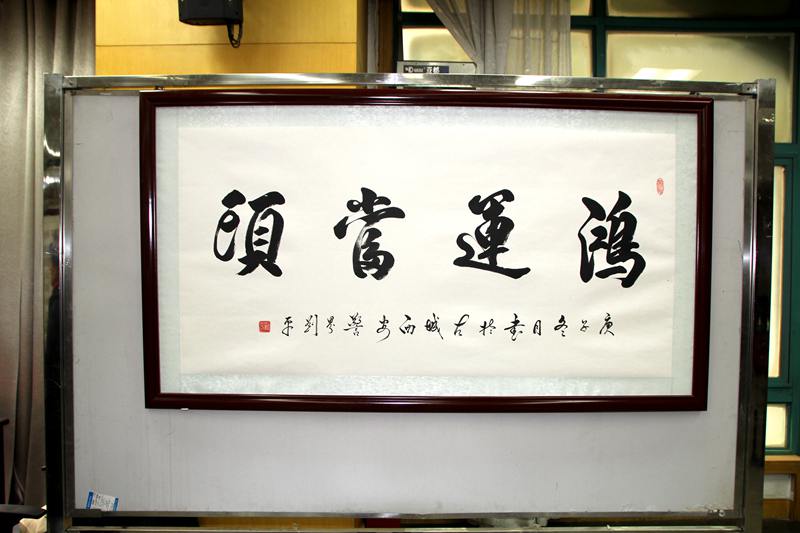 鴻運當頭
庚子冬月書於古城西安警界劉平